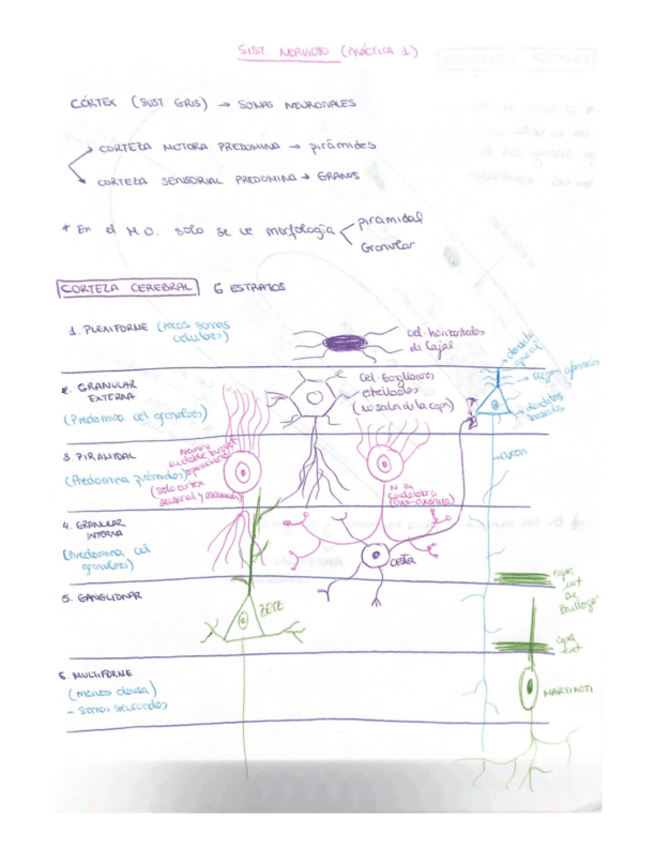 SIST. NERVIOSO (PRÁCTICA 1)
CÓRTEX (SUST GRIS) → SOMAS NEURONALES
CORTEZA MOTORA PREDOMINA → pirámides
CORTEZA SENSORIAL PREDOMINA → GRANOS
* En el M.O. solo se ve morfología
piramidal
Granular
CORTEZA CEREBRAL 6 ESTRATOS
1. PLEXIFORME (pocos somas
celulares)
cel. horizontales
de Cajal
2. GRANULAR
EXTERNA
(Predomina cel granulares)
cel. Ganglionares
estrelladas
(no salen de la capa)
dendrita
apical
dendritas
basales
axon
3. PIRAMIDAL
(Predomina pirámides)
Neurona
(solo cortex
N. en
candelabro
4. GRANULAR
INTERNA
(Predomina cel
granulares)
cesta
5. GANGLIONAR
BETZ
capa
int
De
Baillager
capa
int
6. MULTIFORME
(menos densa)
MARTINOTI